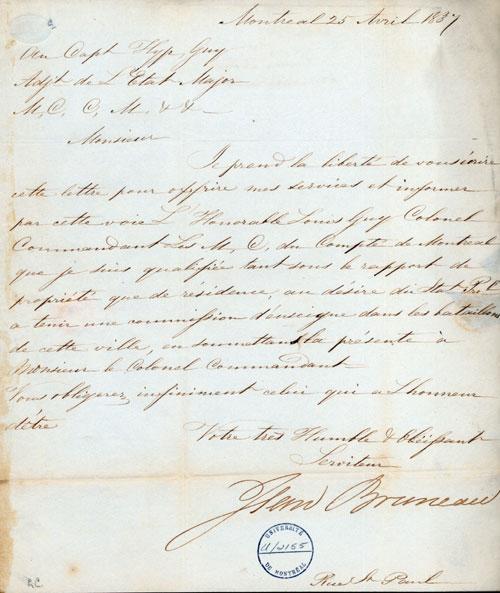 Montreal 25 Avril 1837
Au Capt Hyp. Guy
Adjt de L'Etat Major
M, C, C, M, & &
Monsieur
Je prend la liberté de vous écrire
cette lettre, pour offrire mes services et informer
par cette voie L'Honorable Louis Guy Colonel
Commandant Les M, C, du Compté de Montreal
que je suis qualifiée tant sous le rapport de
propriété que de résidence, au désire du Stat. P.
a tenir une commission d'enseigne dans les bataillons
de cette ville, en soumettant la présente à
Monsieur le Colonel Commandant
Vous obligerez, infiniment celui qui a L'honneur
d'être
Votre très Humble & Obéissant
Serviteur
Jean Bruneau
UNIVERSITÉ
U/2155
DE MONTRÉAL
Rue St Paul